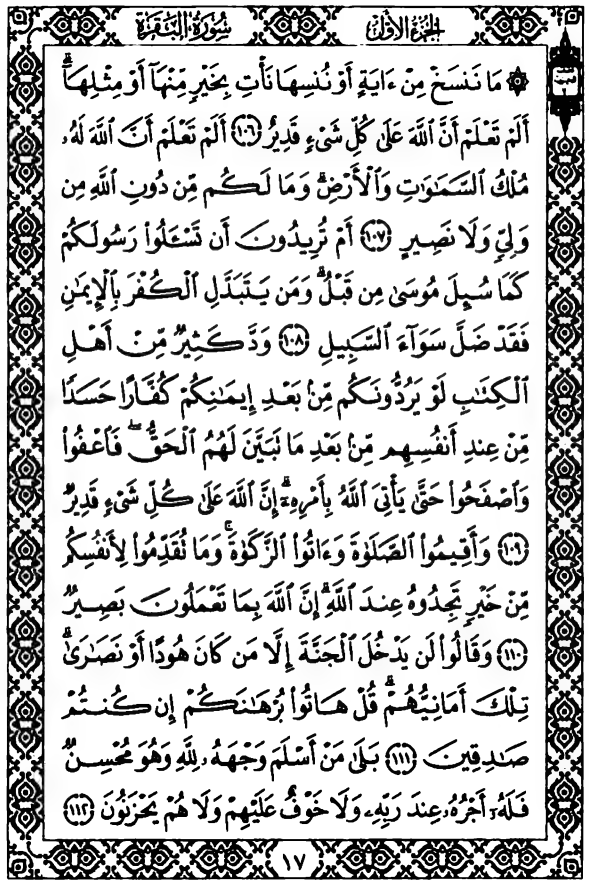 سُورَةُ البَقَرَةِ الجُزءُ الأوّلُ
۞ مَا نَنسَخْ مِنْ ءَايَةٍ أَوْ نُنسِهَا نَأْتِ بِخَيْرٍ مِّنْهَآ أَوْ مِثْلِهَآۗ
أَلَمْ تَعْلَمْ أَنَّ ٱللَّهَ عَلَىٰ كُلِّ شَىْءٍ قَدِيرٌ ١٠٦ أَلَمْ تَعْلَمْ أَنَّ ٱللَّهَ لَهُۥ
مُلْكُ ٱلسَّمَٰوَٰتِ وَٱلْأَرْضِۗ وَمَا لَكُم مِّن دُونِ ٱللَّهِ مِن
وَلِىٍّ وَلَا نَصِيرٍ ١٠٧ أَمْ تُرِيدُونَ أَن تَسْـَٔلُوا۟ رَسُولَكُمْ
كَمَا سُئِلَ مُوسَىٰ مِن قَبْلُۗ وَمَن يَتَبَدَّلِ ٱلْكُفْرَ بِٱلْإِيمَٰنِ
فَقَدْ ضَلَّ سَوَآءَ ٱلسَّبِيلِ ١٠٨ وَدَّ كَثِيرٌ مِّنْ أَهْلِ
ٱلْكِتَٰبِ لَوْ يَرُدُّونَكُم مِّنۢ بَعْدِ إِيمَٰنِكُمْ كُفَّارًا حَسَدًا
مِّنْ عِندِ أَنفُسِهِم مِّنۢ بَعْدِ مَا تَبَيَّنَ لَهُمُ ٱلْحَقُّۖ فَٱعْفُوا۟
وَٱصْفَحُوا۟ حَتَّىٰ يَأْتِىَ ٱللَّهُ بِأَمْرِهِۦٓۗ إِنَّ ٱللَّهَ عَلَىٰ كُلِّ شَىْءٍ قَدِيرٌ
١٠٩ وَأَقِيمُوا۟ ٱلصَّلَوٰةَ وَءَاتُوا۟ ٱلزَّكَوٰةَۚ وَمَا تُقَدِّمُوا۟ لِأَنفُسِكُم
مِّنْ خَيْرٍ تَجِدُوهُ عِندَ ٱللَّهِۗ إِنَّ ٱللَّهَ بِمَا تَعْمَلُونَ بَصِيرٌ
١١٠ وَقَالُوا۟ لَن يَدْخُلَ ٱلْجَنَّةَ إِلَّا مَن كَانَ هُودًا أَوْ نَصَٰرَىٰۗ
تِلْكَ أَمَانِيُّهُمْۗ قُلْ هَاتُوا۟ بُرْهَٰنَكُمْ إِن كُنتُمْ
صَٰدِقِينَ ١١١ بَلَىٰ مَنْ أَسْلَمَ وَجْهَهُۥ لِلَّهِ وَهُوَ مُحْسِنٌ
فَلَهُۥٓ أَجْرُهُۥ عِندَ رَبِّهِۦ وَلَا خَوْفٌ عَلَيْهِمْ وَلَا هُمْ يَحْزَنُونَ ١١٢
١٧